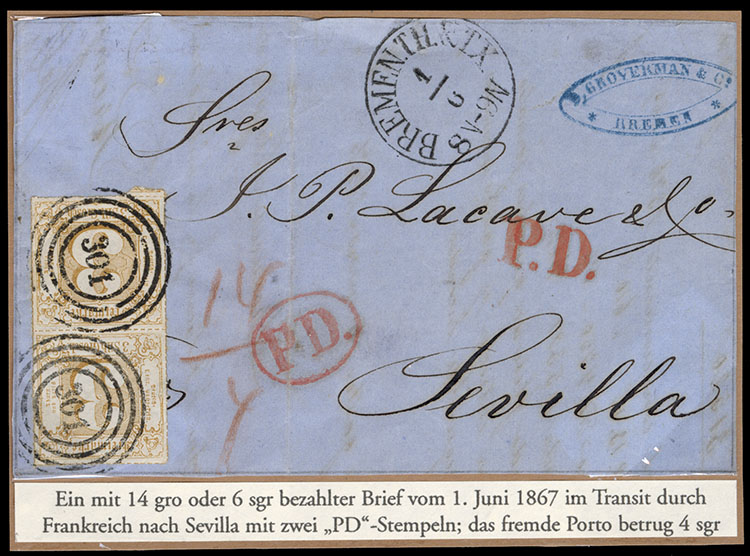 BREMEN TH.&TX.
1/6
6-8N
D. GROVERMAN & Co
* BREMEN *
Sres
J. P. Lacave & Co
P.D.
301
14
P.D.
4
301
Sevilla
Ein mit 14 gro oder 6 sgr bezahlter Brief vom 1. Juni 1867 im Transit durch
Frankreich nach Sevilla mit zwei „PD“-Stempeln; das fremde Porto betrug 4 sgr